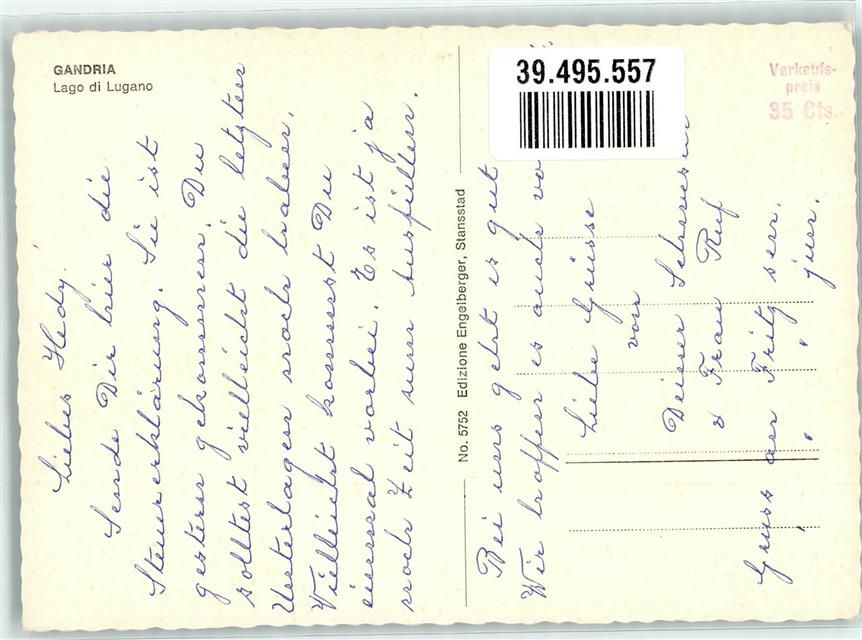 GANDRIA
Lago di Lugano
39.495.557
Verkaufs-
preis
35 Cts.
No. 5752 Edizione Engelberger, Stansstad
Liebes Hedy.
Sende Dir hier die
Steuerklärung. Sie ist
gestern gekommen. Du
solltest vielleicht die letzten
Unterlagen noch haben.
Vielleicht kommst Du
einmal vorbei. Es ist ja
noch Zeit zum ausfüllen.
Bei uns geht es gut
Wir hoffen es auch
Liebe Grüsse
von
Deiner
& Frau Ruf
Gruss an Fritz sen.
" " jun.